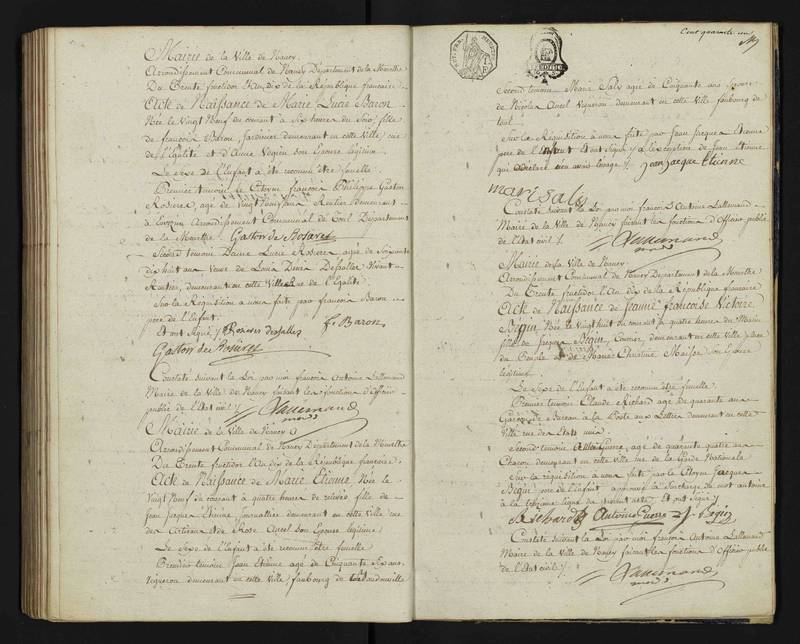 Mairie de la Ville de Nancy
Arrondissement Communal de Nancy Département de la Meurthe
Du Trente fructidor l'An dix de la République francaise
Acte de Naissance de Marie Lucie Baron
Née le Vingt Neuf du courant à Six heures du Soir, fille
de françois Baron, Jardinier demeurant en cette Ville rue
de l'Egalité et d'Anne Vegien son Epouse légitime
Le Sexe de l'Enfant a été reconnu être femelle
Premier témoin, le Citoyen françois Philippe Gaston
Rosieres, agé de Vingt huit ans, Rentier demeurant
à Arrondissement Communal de Toul Département
de la Meurthe Gaston de Rosieres
Second témoin Dame Lucie Rosieres agée de Soixante
dix huit ans Veuve de Louis Denis Desfalles Vivant
Rentier, demeurant en cette Ville Rue de l'Egalité
Sur la Requisition a nous faite par françois Baron
pere de l'Enfant
Et ont Signé / Rosieres desfalles f. Baron
Gaston des Rosieres
Constaté suivant la Loi par moi françois Antoine Lallemand
Maire de la Ville de Nancy faisant les fonctions d'Officier
public de l'Etat civil / Lallemand
Mairie de la Ville de Nancy
Arrondissement Communal de Nancy Département de la Meurthe
Du Trente fructidor l'An dix de la République francaise
Acte de Naissance de Marie Etienne Née le
Vingt Neuf du courant à quatre heures de relevée, fille de
Jean Jacques Etienne Journallier demeurant en cette Ville rue
des Artisans et de Rose Ancel Son Epouse légitime
Le Sexe de l'Enfant a été reconnu être femelle
Premier témoin Jean Etienne agé de Cinquante Six ans
Vigneron demeurant en cette Ville faubourg de
Cent quarante un
Second témoin Marie Sals agée de Cinquante ans Epouse
de Nicolas Ancel Vigneron demeurant en cette Ville faubourg de
toul
Sur la Réquisition a nous faite par Jean Jacques Etienne
pere de l'Enfant Et ont Signé à l'exception de Jean Etienne
qui a déclaré n'en avoir l'usage / jean jacque Etienne
mari sals
Constaté suivant la Loi par moi françois Antoine Lallemand
Maire de la Ville de Nancy faisant les fonctions d'Officier public
de l'Etat civil / Lallemand
Mairie de la Ville de Nancy
Arrondissement Communal de Nancy Département de la Meurthe
Du Trente fructidor l'An dix de la République francaise
Acte de Naissance de Jeanne françoise Victoire
Bégin Née le Vingt huit du courant à quatre heures du Matin
fille de Jacques Bégin, demeurant en cette Ville place
du Peuple et de Marie Christine Son Epouse
légitime
Le Sexe de l'Enfant a été reconnu être femelle
Premier témoin Claude Richard agé de quarante ans
Garçon de Bureau à la Poste aux Lettres demeurant en cette
Ville rue des Etats unis
Second témoin Guerre, agé de quarante quatre ans
demeurant en cette Ville rue de la Garde Nationale
Sur la réquisition a nous faite par le Citoyen Jacques
Bégin pere de l'Enfant approuvé la Surcharge du mot antoine
à la ligne du présent acte Et ont Signé /
Richard Antoine Guerre J. Begin
Constaté suivant la Loi par moi françois Antoine Lallemand
Maire de la Ville de Nancy faisant les fonctions d'Officier public
de l'Etat civil / Lallemand